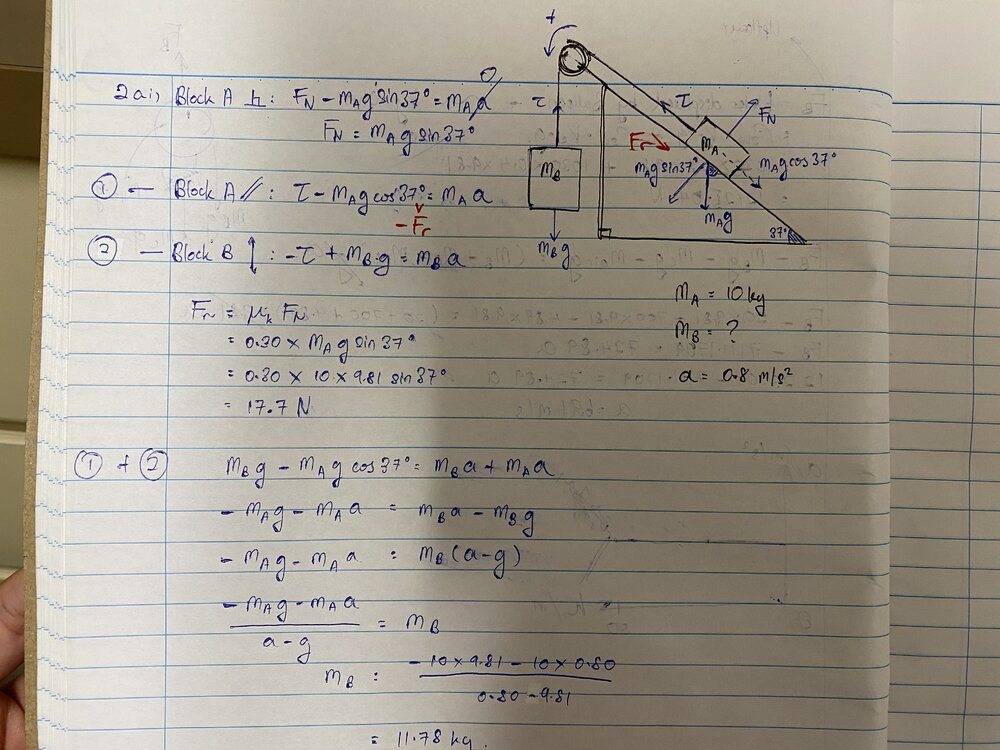 +
2ai, Block A ⊥: F_N - m_A g sin37° = m_A a 0
F_N = m_A g sin37°
① — Block A // : T - m_A g cos37° = m_A a
- Fr
② — Block B ↕ : -T + m_B g = m_B a
T
T
F_N
Fr →
m_A
m_A g sin37°
m_A g cos37°
m_A g
m_B
m_B g
37°
Fr = μ_k F_N
= 0.30 × m_A g sin37°
= 0.30 × 10 × 9.81 sin37°
= 17.7 N
m_A = 10 kg
m_B = ?
a = 0.8 m/s²
① + ② m_B g - m_A g cos37° = m_B a + m_A a
- m_A g - m_A a = m_B a - m_B g
- m_A g - m_A a = m_B (a-g)
- m_A g - m_A a
a - g
= m_B
m_B = - 10 × 9.81 - 10 × 0.80
0.80 - 9.81
= 11.78 kg.